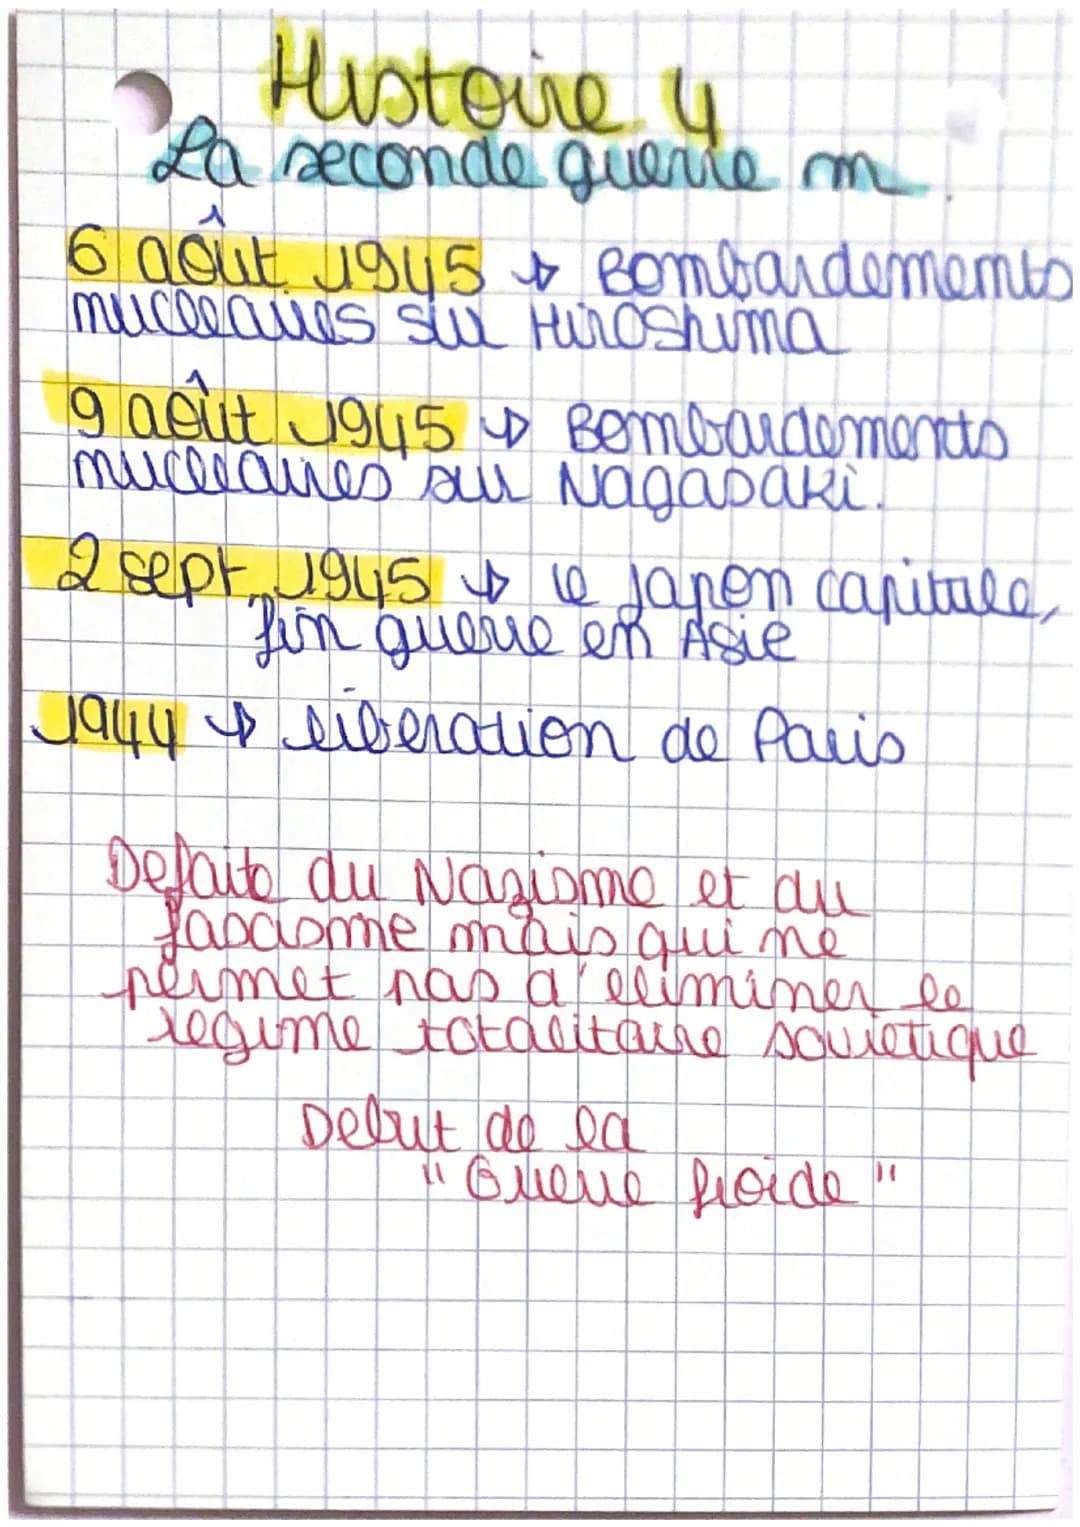 Histoire 4
La seconde guerre m.
6 août 1945 → Bombardements
nucleaires sur Hiroshima
9 août 1945 → Bombardements
nucleaires sur Nagasaki.
2 sept 1945 → le japon capitule,
fin guerre en Asie
1944 → liberation de Paris
Defaite du Nazisme et du
fascisme mais qui ne
permet pas d'eliminer le
regime totalitaire sovietique
Debut de la
"Guerre froide"